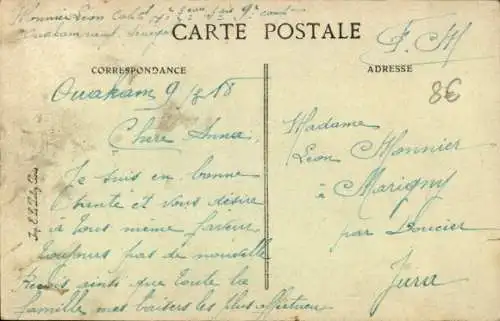 Monnier Léon
Ouakam
CARTE POSTALE
F. M
CORRESPONDANCE
ADRESSE
8€
Ouakam 9 18
Chère Anna,
Je suis en bonne
Santé et vous désire
à tous même faveur
Toujours pas de nouvelle
Reçois ainsi que toute la
famille mes baisers les plus affectueux
Madame
Léon Monnier
à Marigny
par Doucier
Jura